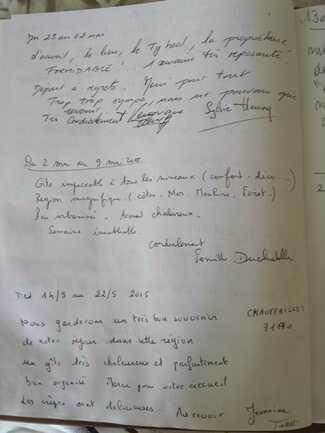 Du 25 au 02 mai
d'accueil, le lieu, le Ty bed, la propriétaire
FORMIDABLE ! Très reposants
Départ à regrets. Merci pour tout
Trop trop sympa, nous ne pouvons que
revenir.
Très Cordialement
Sylvie
Du 2 mai au 9 mai
Gîte impeccable à tous les niveaux (confort - déco ...)
Région magnifique (côtes - Mer - Moulins - Foret...)
Peu urbanisé. Accueil chaleureux.
Semaine inoubliable.
Cordialement
Famille
Du 14/5 au 22/5 2015
CHAUFFAILLES
71170
Nous garderons un très bon souvenir
de notre séjour dans cette région
un gîte très chaleureux et parfaitement
bien organisé Merci pour votre accueil
Les crêpes sont délicieuses. Au revoir Jeannine
13